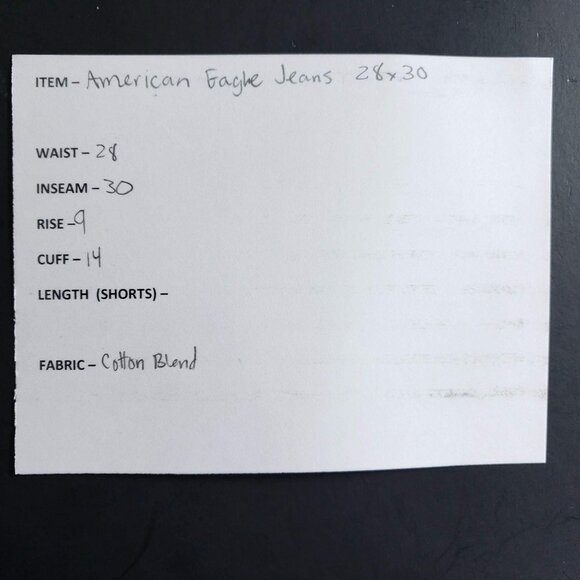 ITEM – American Eagle Jeans 28x30
WAIST – 28
INSEAM – 30
RISE – 9
CUFF – 14
LENGTH (SHORTS) –
FABRIC – Cotton Blend